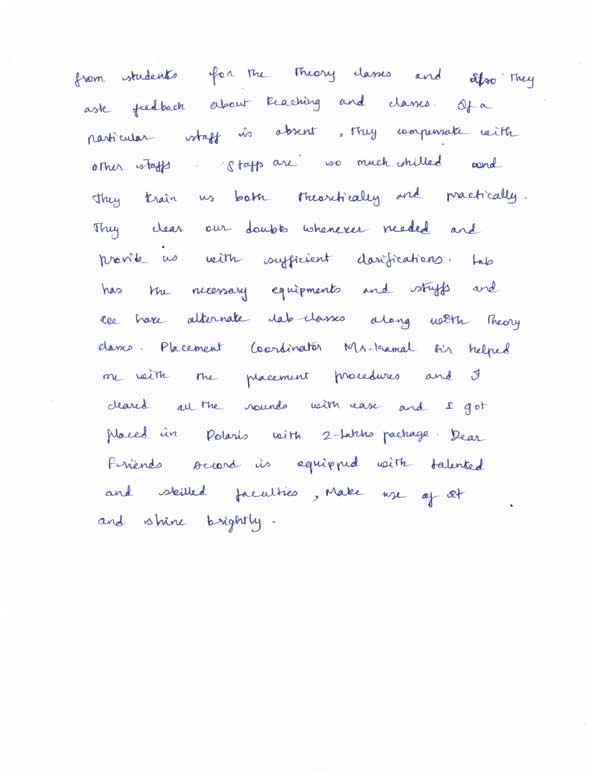 from students for the theory classes and also they
ask feedback about teaching and classes. If a
particular staff is absent, they compensate with
other staffs. Staffs are so much chilled and
they train us both theoretically and practically.
They clear our doubts whenever needed and
provide us with sufficient clarifications. Lab
has the necessary equipments and stuffs and
we have alternate lab-classes along with theory
classes. Placement Coordinator Mr-Kamal Sir helped
me with the placement procedures and I
cleared all the rounds with ease and I got
placed in Polaris with 2-Lakhs package. Dear
Friends Accord is equipped with talented
and skilled faculties, Make use of it
and shine brightly.